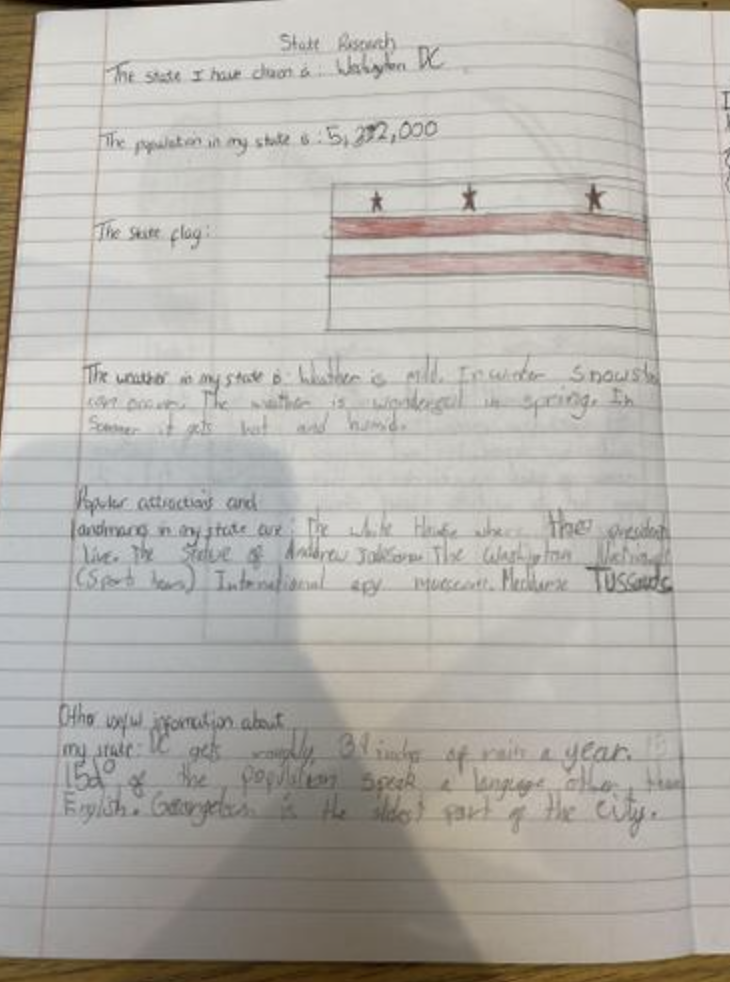 State Research
The state I have chosen is: Washington DC
The population in my state is: 5,322,000
The state flag:
The weather in my state is: Weather is mild. In winter snowsto
can occur. The weather is in spring. In
Summer it gets hot and humid.
Popular attractions and
landmarks in my state are: The white House where the president
Live. The Statue of Andrew Jackson. The Washington
(Sport team) International spy Tussauds
Other useful information about
my state: DC gets roughly 39 inches of rain a year. 15
of the population speak a language other than
English. Georgetown is the oldest part of the city.